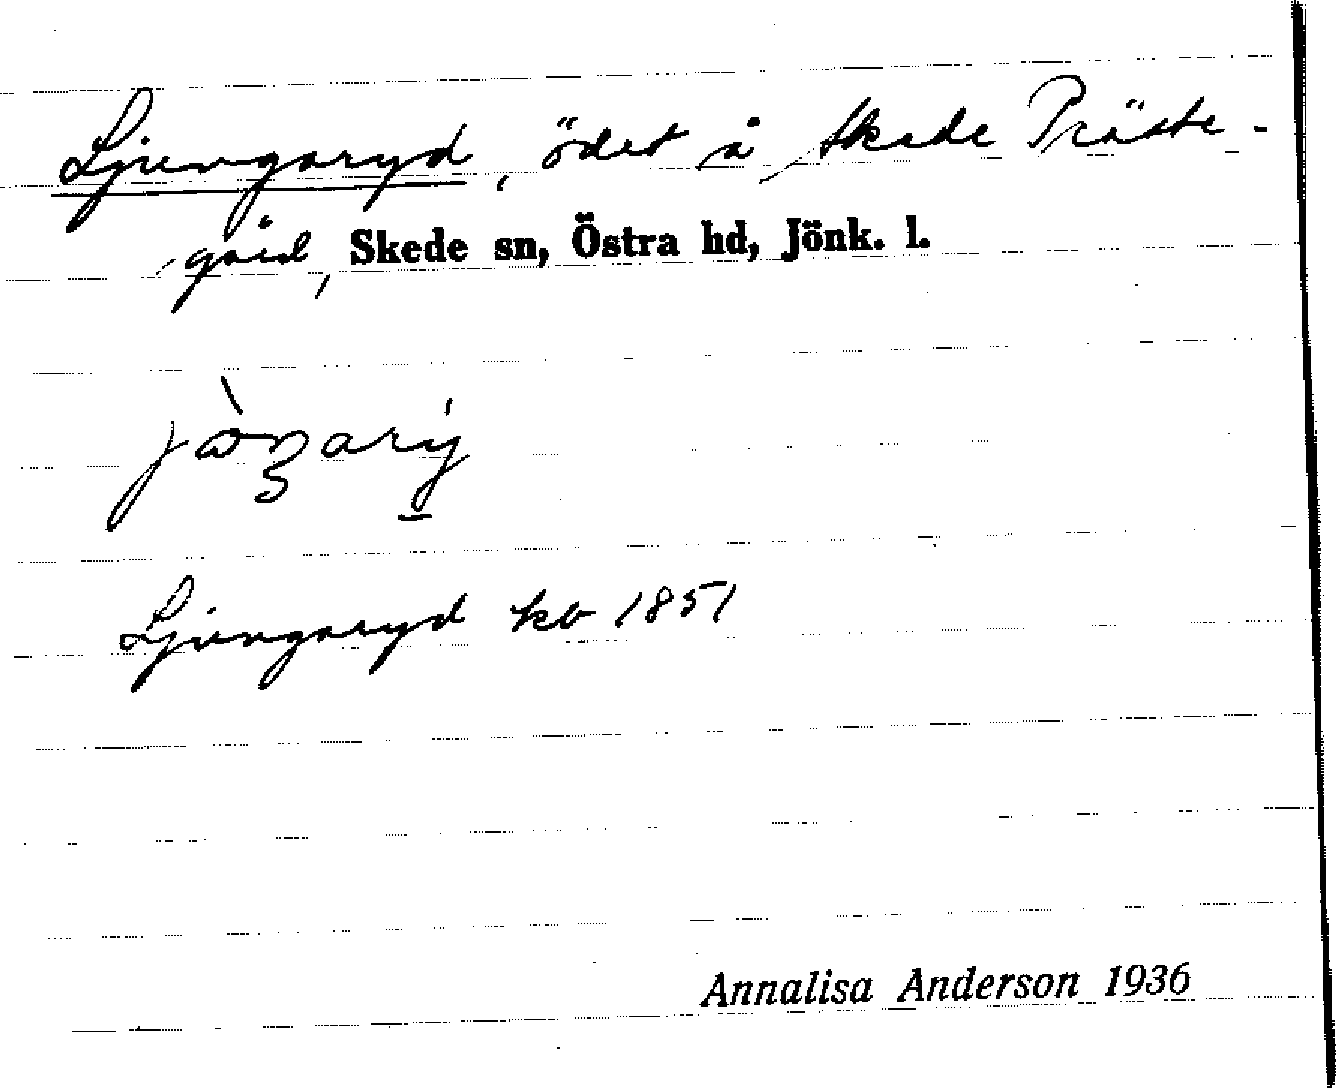 Ljungaryd, ödet å Skede Präste-
gård, Skede sn, Östra hd, Jönk. l.
Ljungaryd kb 1851
Annalisa Anderson 1936